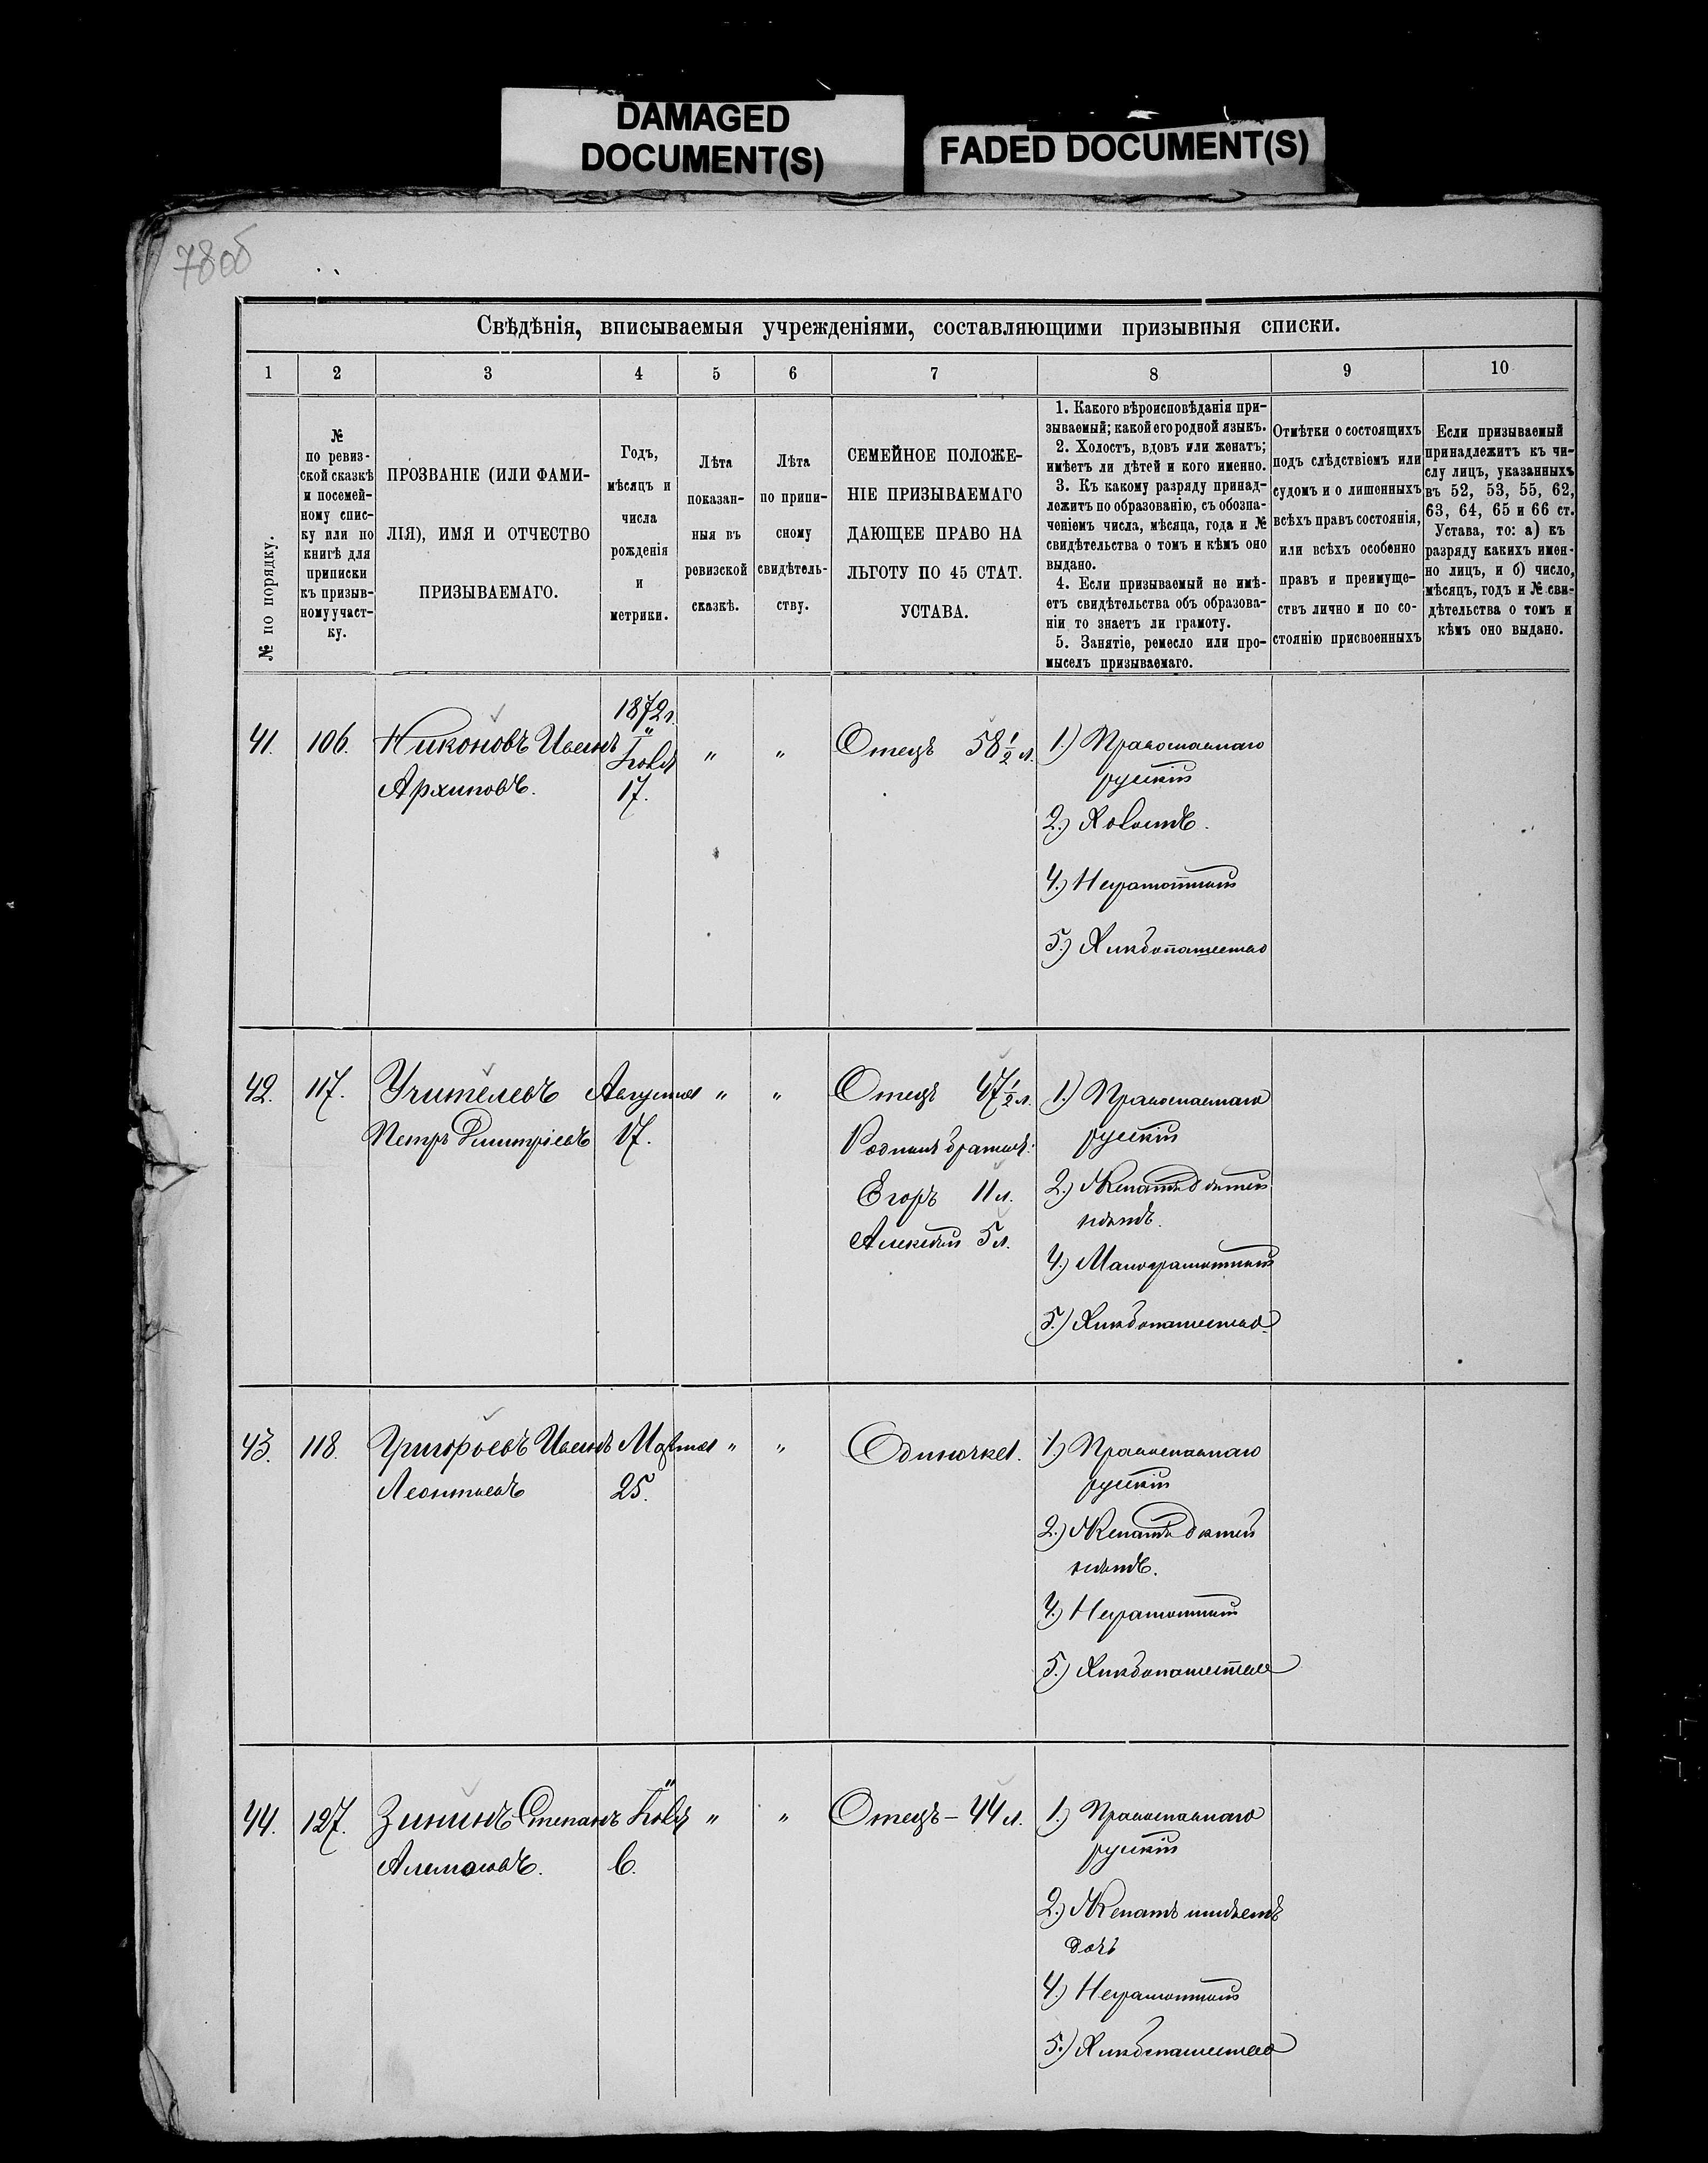 DAMAGED
DOCUMENT(S)
FADED DOCUMENT(S)
78об
Свѣдѣнія, вписываемыя учрежденіями, составляющими призывныя списки.
1 2 3 4 5 6 7 8 9 10
№ по порядку.
№
по ревиз-
ской сказкѣ
и посемей-
ному спис-
ку или по
книгѣ для
приписки
къ призыв-
ному участ-
ку.
ПРОЗВАНІЕ (ИЛИ ФАМИ-
ЛІЯ), ИМЯ И ОТЧЕСТВО
ПРИЗЫВАЕМАГО.
Годъ,
мѣсяцъ и
числа
рожденія
и
метрики.
Лѣта
показан-
ныя въ
ревизской
сказкѣ.
Лѣта
по припи-
сному
свидѣтель-
ству.
СЕМЕЙНОЕ ПОЛОЖЕ-
НІЕ ПРИЗЫВАЕМАГО
ДАЮЩЕЕ ПРАВО НА
ЛЬГОТУ ПО 45 СТАТ.
УСТАВА.
1. Какого вѣроисповѣданія при-
зываемый; какой его родной языкъ.
2. Холостъ, вдовъ или женатъ;
имѣетъ ли дѣтей и кого именно.
3. Къ какому разряду принад-
лежитъ по образованію, съ обозна-
ченіемъ числа, мѣсяца, года и №
свидѣтельства о томъ и кѣмъ оно
выдано.
4. Если призываемый не имѣ-
етъ свидѣтельства объ образова-
ніи то знаетъ ли грамоту.
5. Занятіе, ремесло или про-
мыселъ призываемаго.
Отмѣтки о состоящихъ
подъ слѣдствіемъ или
судомъ и о лишенныхъ
всѣхъ правъ состоянія,
или всѣхъ особенно
правъ и преимуще-
ствъ лично и по со-
стоянію присвоенныхъ
Если призываемый
принадлежитъ къ чи-
слу лицъ, указанныхъ
въ 52, 53, 55, 62,
63, 64, 65 и 66 ст.
Устава, то: а) къ
разряду какихъ имен-
но лицъ, и б) число,
мѣсяцъ, годъ и № сви-
дѣтельства о томъ и
кѣмъ оно выдано.
41. 106. Никоновъ Иванъ
Архиповъ.
1872 г.
Іюля
17.
" "
Отецъ 58 1/2 л.
1.) Православнаго
русскій
2.) Холостъ.
4.) Неграмотный
5.) Хлѣбопашество
42. 117. Учителевъ
Петръ Димитріевъ
Августа
17.
" "
Отецъ 47 1/2 л.
Родныя братья:
Егоръ 11 л.
Алексѣй 5 л.
1.) Православнаго
русскій
2.) Женатъ дѣтей
нѣтъ.
4.) Малограмотный
5.) Хлѣбопашество.
43. 118. Григорьевъ Иванъ
Леонтьевъ
Марта
25.
" "
Одиночка.
1.) Православнаго
русскій
2.) Женатъ дѣтей
нѣтъ.
4.) Неграмотный
5.) Хлѣбопашество
44. 127. Зининъ Степанъ
Іюля
6.
" "
Отецъ – 44 л.
1.) Православнаго
русскій
2.) Женатъ имѣетъ
дочь
4.) Неграмотный
5.) Хлѣбопашество